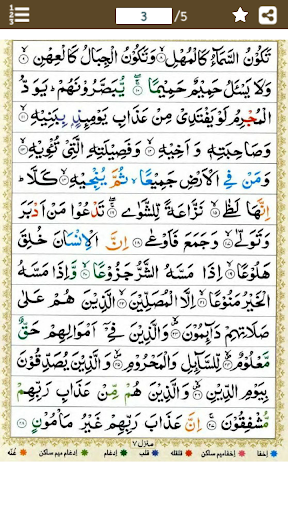 3 /5
تَكُوْنُ السَّمَآءُ كَالْمُهْلِ ۙ﴿۸﴾ وَتَكُوْنُ الْجِبَالُ كَالْعِهْنِ ۙ﴿۹﴾
وَلَا يَسْـَٔلُ حَمِيْمٌ حَمِيْمًا ۚۖ﴿۱۰﴾ يُّبَصَّرُوْنَهُمْ ؕ يَوَدُّ
الْمُجْرِمُ لَوْ يَفْتَدِيْ مِنْ عَذَابِ يَوْمِىِٕذٍۭ بِبَنِيْهِ ۙ﴿۱۱﴾
وَصَاحِبَتِهٖ وَاَخِيْهِ ۙ﴿۱۲﴾ وَفَصِيْلَتِهِ الَّتِيْ تُـْٔوِيْهِ ۙ﴿۱۳﴾
وَمَنْ فِي الْاَرْضِ جَمِيْعًا ۙ ثُمَّ يُنْجِيْهِ ۙ﴿۱۴﴾ كَلَّا ؕ
اِنَّهَا لَظٰى ۙ﴿۱۵﴾ نَزَّاعَةً لِّلشَّوٰى ۚۖ﴿۱۶﴾ تَدْعُوْا مَنْ اَدْبَرَ
وَتَوَلّٰى ۙ﴿۱۷﴾ وَجَمَعَ فَاَوْعٰى ﴿۱۸﴾ اِنَّ الْاِنْسَانَ خُلِقَ
هَلُوْعًا ۙ﴿۱۹﴾ اِذَا مَسَّهُ الشَّرُّ جَزُوْعًا ۙ﴿۲۰﴾ وَّاِذَا مَسَّهُ
الْخَيْرُ مَنُوْعًا ۙ﴿۲۱﴾ اِلَّا الْمُصَلِّيْنَ ۙ﴿۲۲﴾ الَّذِيْنَ هُمْ عَلٰى
صَلَاتِهِمْ دَآىِٕمُوْنَ ۪ۙ﴿۲۳﴾ وَالَّذِيْنَ فِيْۤ اَمْوَالِهِمْ حَقٌّ
مَّعْلُوْمٌ ۪ۙ﴿۲۴﴾ لِّلسَّآىِٕلِ وَالْمَحْرُوْمِ ۪ۙ﴿۲۵﴾ وَالَّذِيْنَ يُصَدِّقُوْنَ
بِيَوْمِ الدِّيْنِ ۪ۙ﴿۲۶﴾ وَالَّذِيْنَ هُمْ مِّنْ عَذَابِ رَبِّهِمْ
مُّشْفِقُوْنَ ۚ﴿۲۷﴾ اِنَّ عَذَابَ رَبِّهِمْ غَيْرُ مَاْمُوْنٍ ﴿۲۸﴾
منزل ۷
اخفا اخفامیم ساکن قلقله قلب ادغام ادغام میم ساکن غنّه